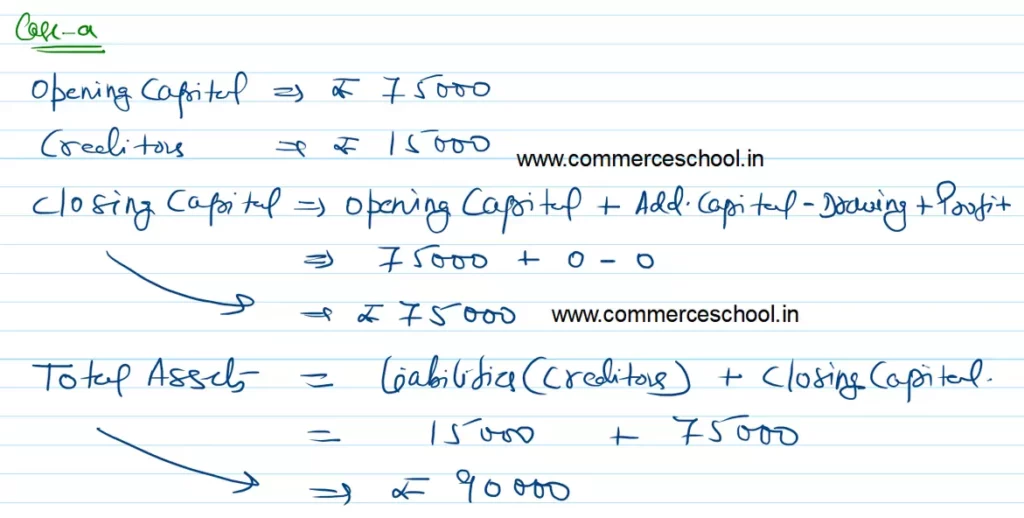 Case-a
Opening Capital ⇒ ₹ 75000
Creditors ⇒ ₹ 15000
www.commerceschool.in
Closing Capital ⇒ Opening Capital + Add. Capital - Drawing + Profit
⇒ 75000 + 0 - 0
→ ₹ 75000 www.commerceschool.in
Total Assets = Liabilities (Creditors) + Closing Capital.
= 15000 + 75000
⇒ ₹ 90000